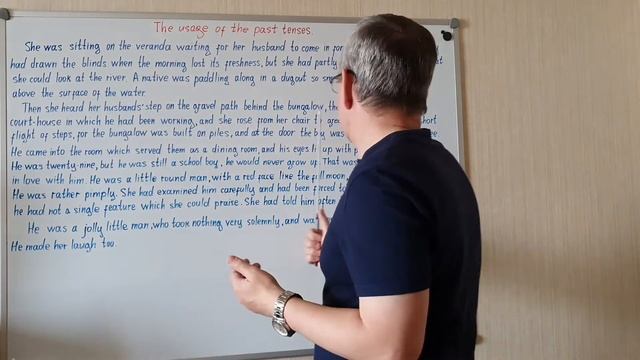 The usage of the past tenses.
She was sitting on the veranda waiting for her husband to come in for
had drawn the blinds when the morning lost its freshness, but she had partly
she could look at the river. A native was paddling along in a dugout so
above the surface of the water.
Then she heard her husbands' step on the gravel path behind the bungalow, the
court-house in which he had been working, and she rose from her chair to
flight of steps, for the bungalow was built on piles, and at the door the boy was
He came into the room which served them as a dining room, and his eyes lit up with
He was twenty-nine, but he was still a school boy, he would never grow up. That was
in love with him. He was a little round man, with a red face like the full moon,
He was rather pimply. She had examined him carefully and had been forced to
he had not a single feature which she could praise. She had told him often
He was a jolly little man, who took nothing very solemnly, and
He made her laugh too.